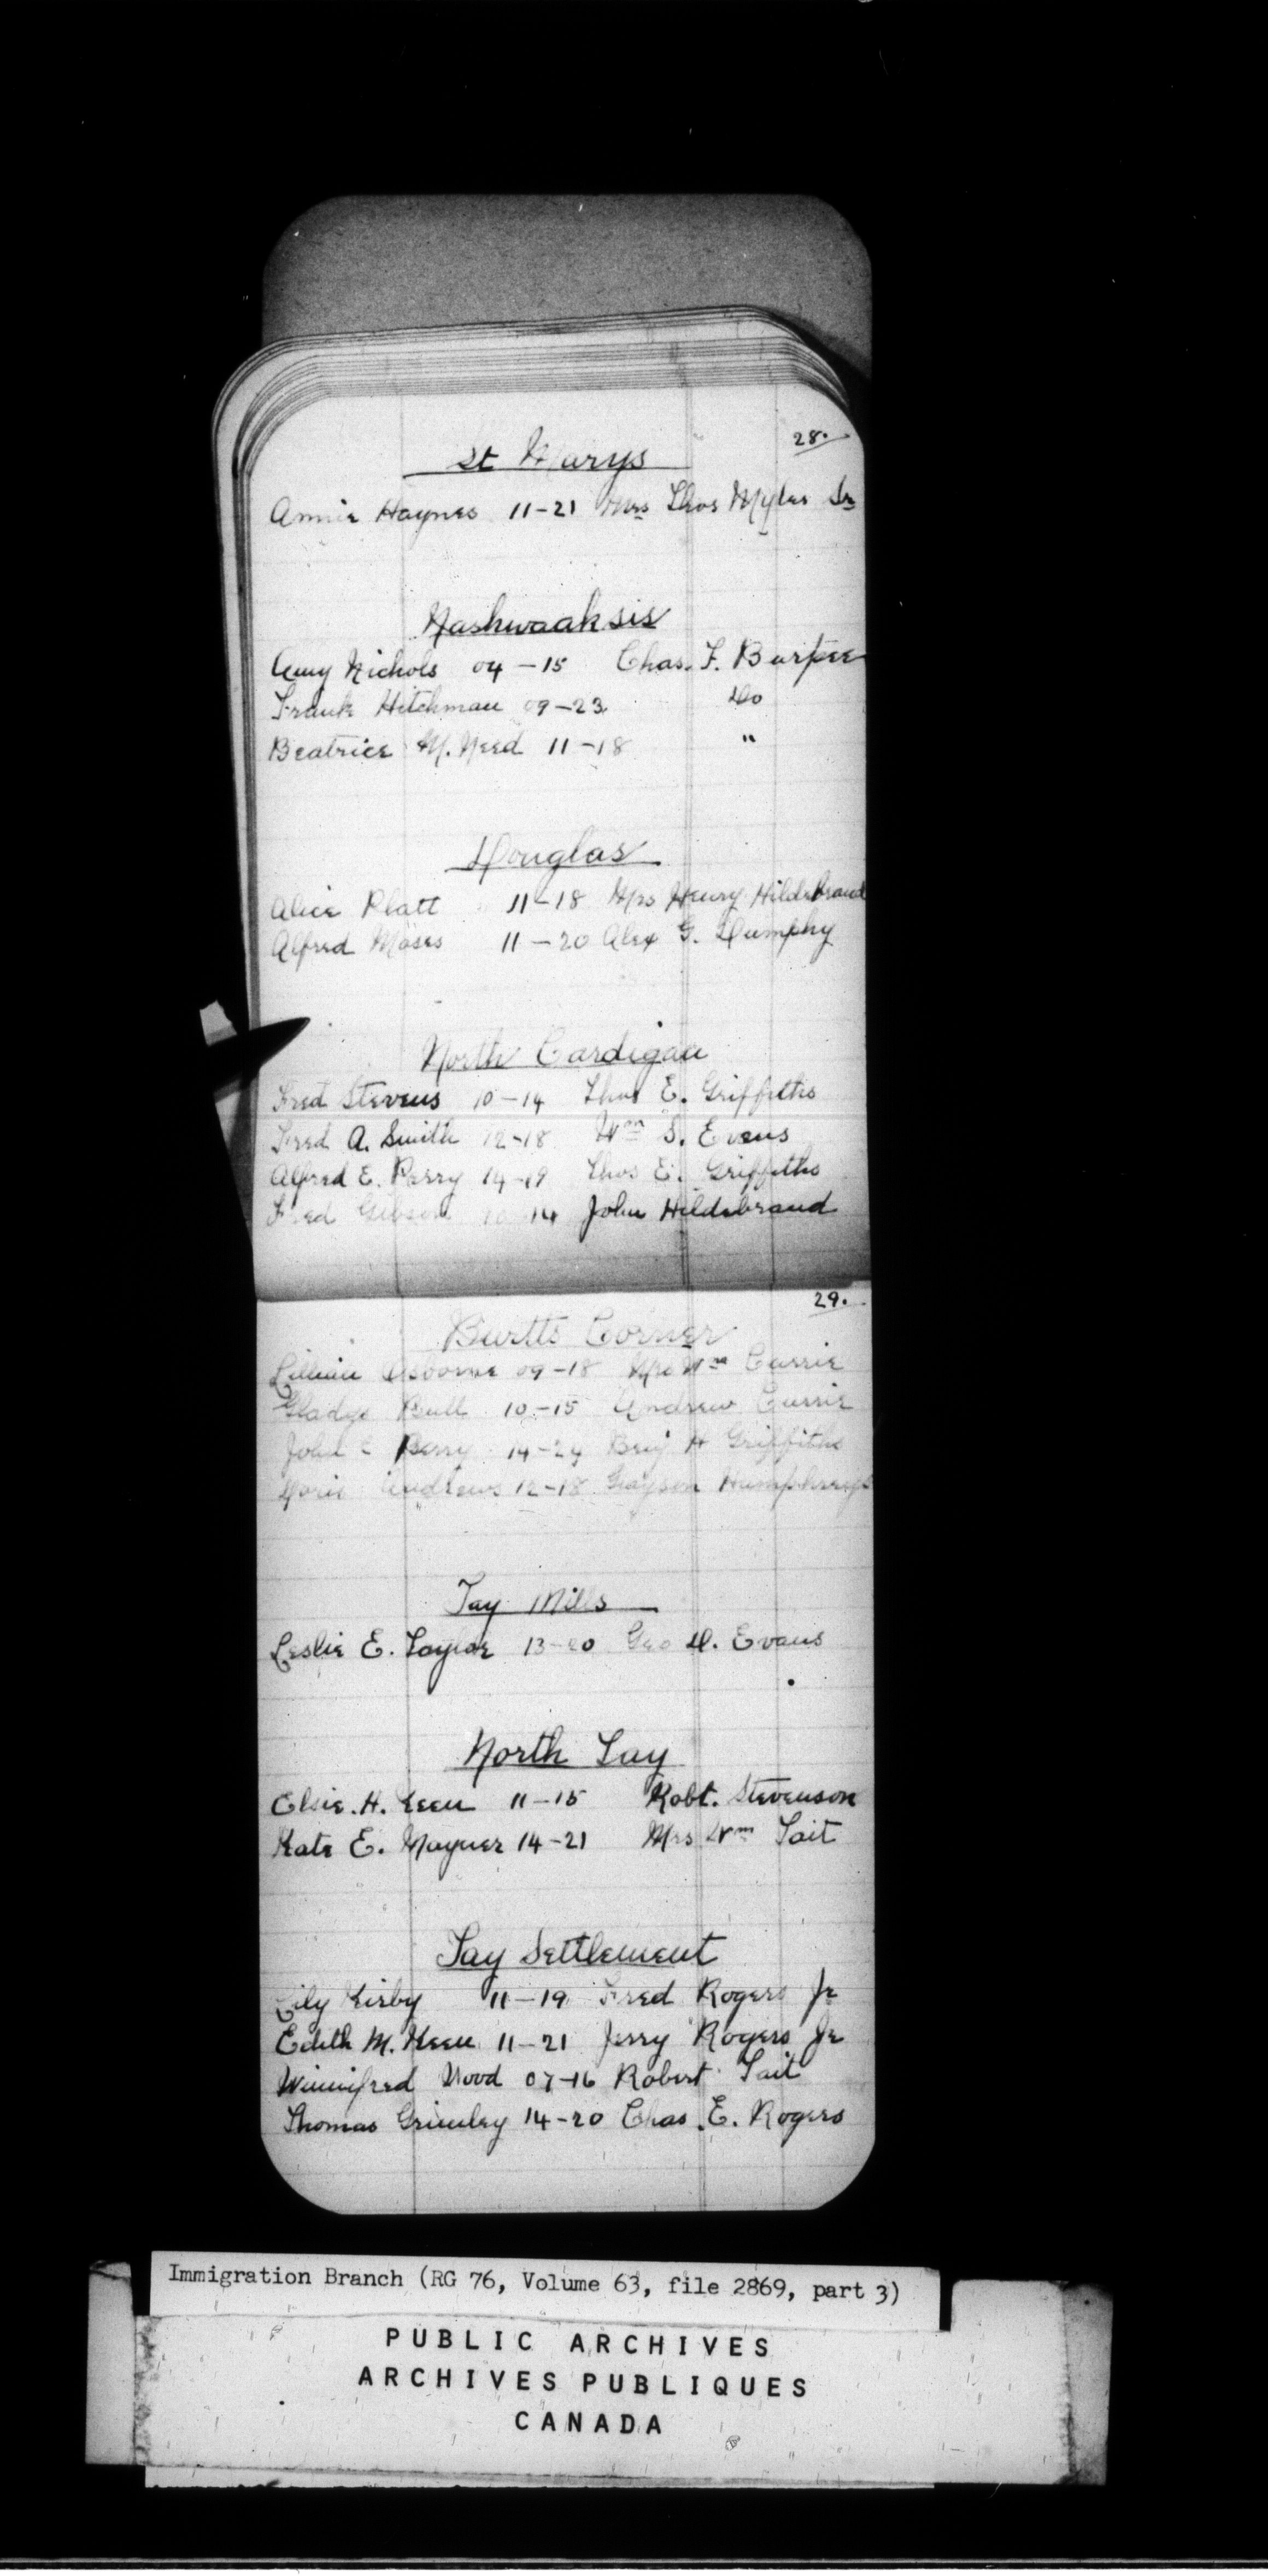 28.
St Marys
Annie Haynes 11-21 Mrs Thos Myles Sr
Nashwaaksis
Amy Nichols 04-15 Chas. F. Burpee
Frank Hitchman 09-23 Do
Beatrice M. Need 11-18 "
Douglas
Alice Platt 11-18 Mrs Henry Hildebrand
Alfred Moses 11-20 Alex G. Dumphy
North Cardigan
Fred Stevens 10-14 Thos E. Griffiths
Fred A. Smith 12-18 Wm S. Evans
Alfred E. Perry 14-19 Thos E. Griffiths
Fred Gibson 10-14 John Hildebrand
29.
Burtts Corner
Lillian Osborne 09-18 Mrs Wm Currie
Gladys Bull 10-15 Andrew Currie
John E Perry 14-24 Benj H Griffiths
Doris Andrews 12-18 Humphreys
Tay Mills
Leslie E. Taylor 13-20 Geo H. Evans
North Tay
Elsie. H. Keen 11-15 Robt. Stevenson
Kate E. Mayner 14-21 Mrs Wm Tait
Tay Settlement
Lily Kirby 11-19 Fred Rogers Jr
Edith M. Keen 11-21 Jerry Rogers Jr
Winnifred Wood 07-16 Robert Tait
Thomas Grimley 14-20 Chas. E. Rogers
Immigration Branch (RG 76, Volume 63, file 2869, part 3)
PUBLIC ARCHIVES
ARCHIVES PUBLIQUES
CANADA